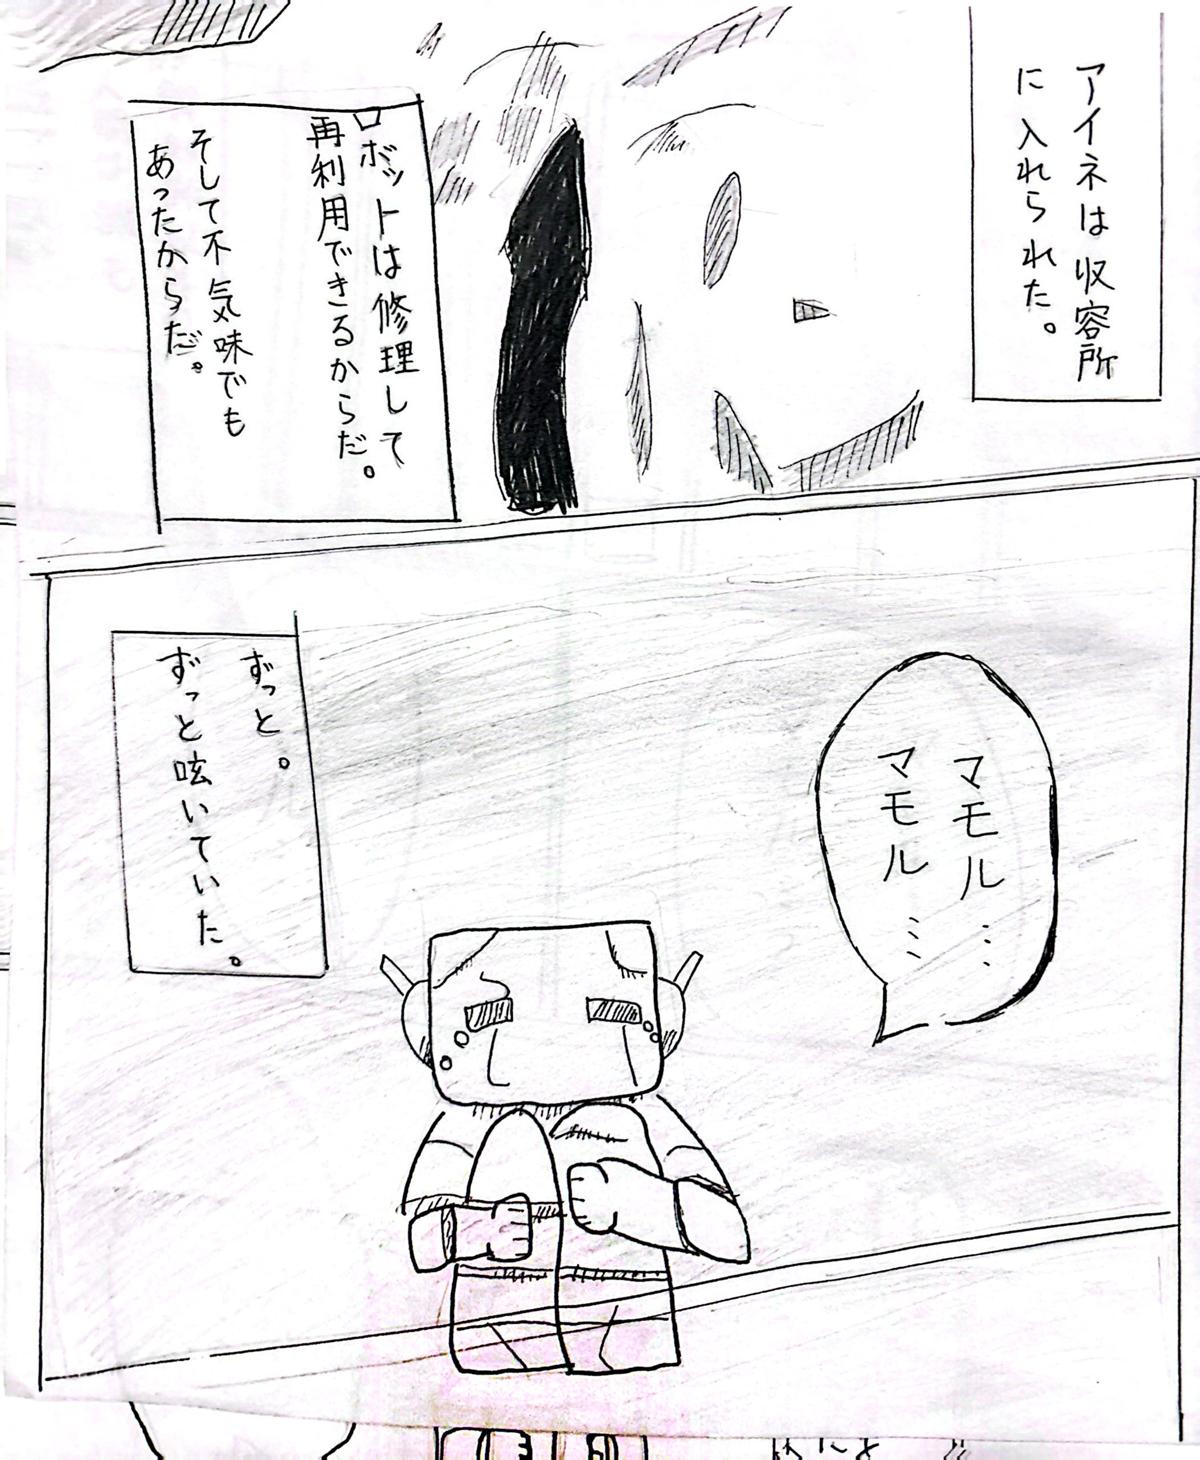 アイネは収容所
に入れられた。
ロボットは修理して
再利用できるからだ。
そして不気味でも
あったからだ。
マモル…
マモル…
ずっと。
ずっと呟いていた。